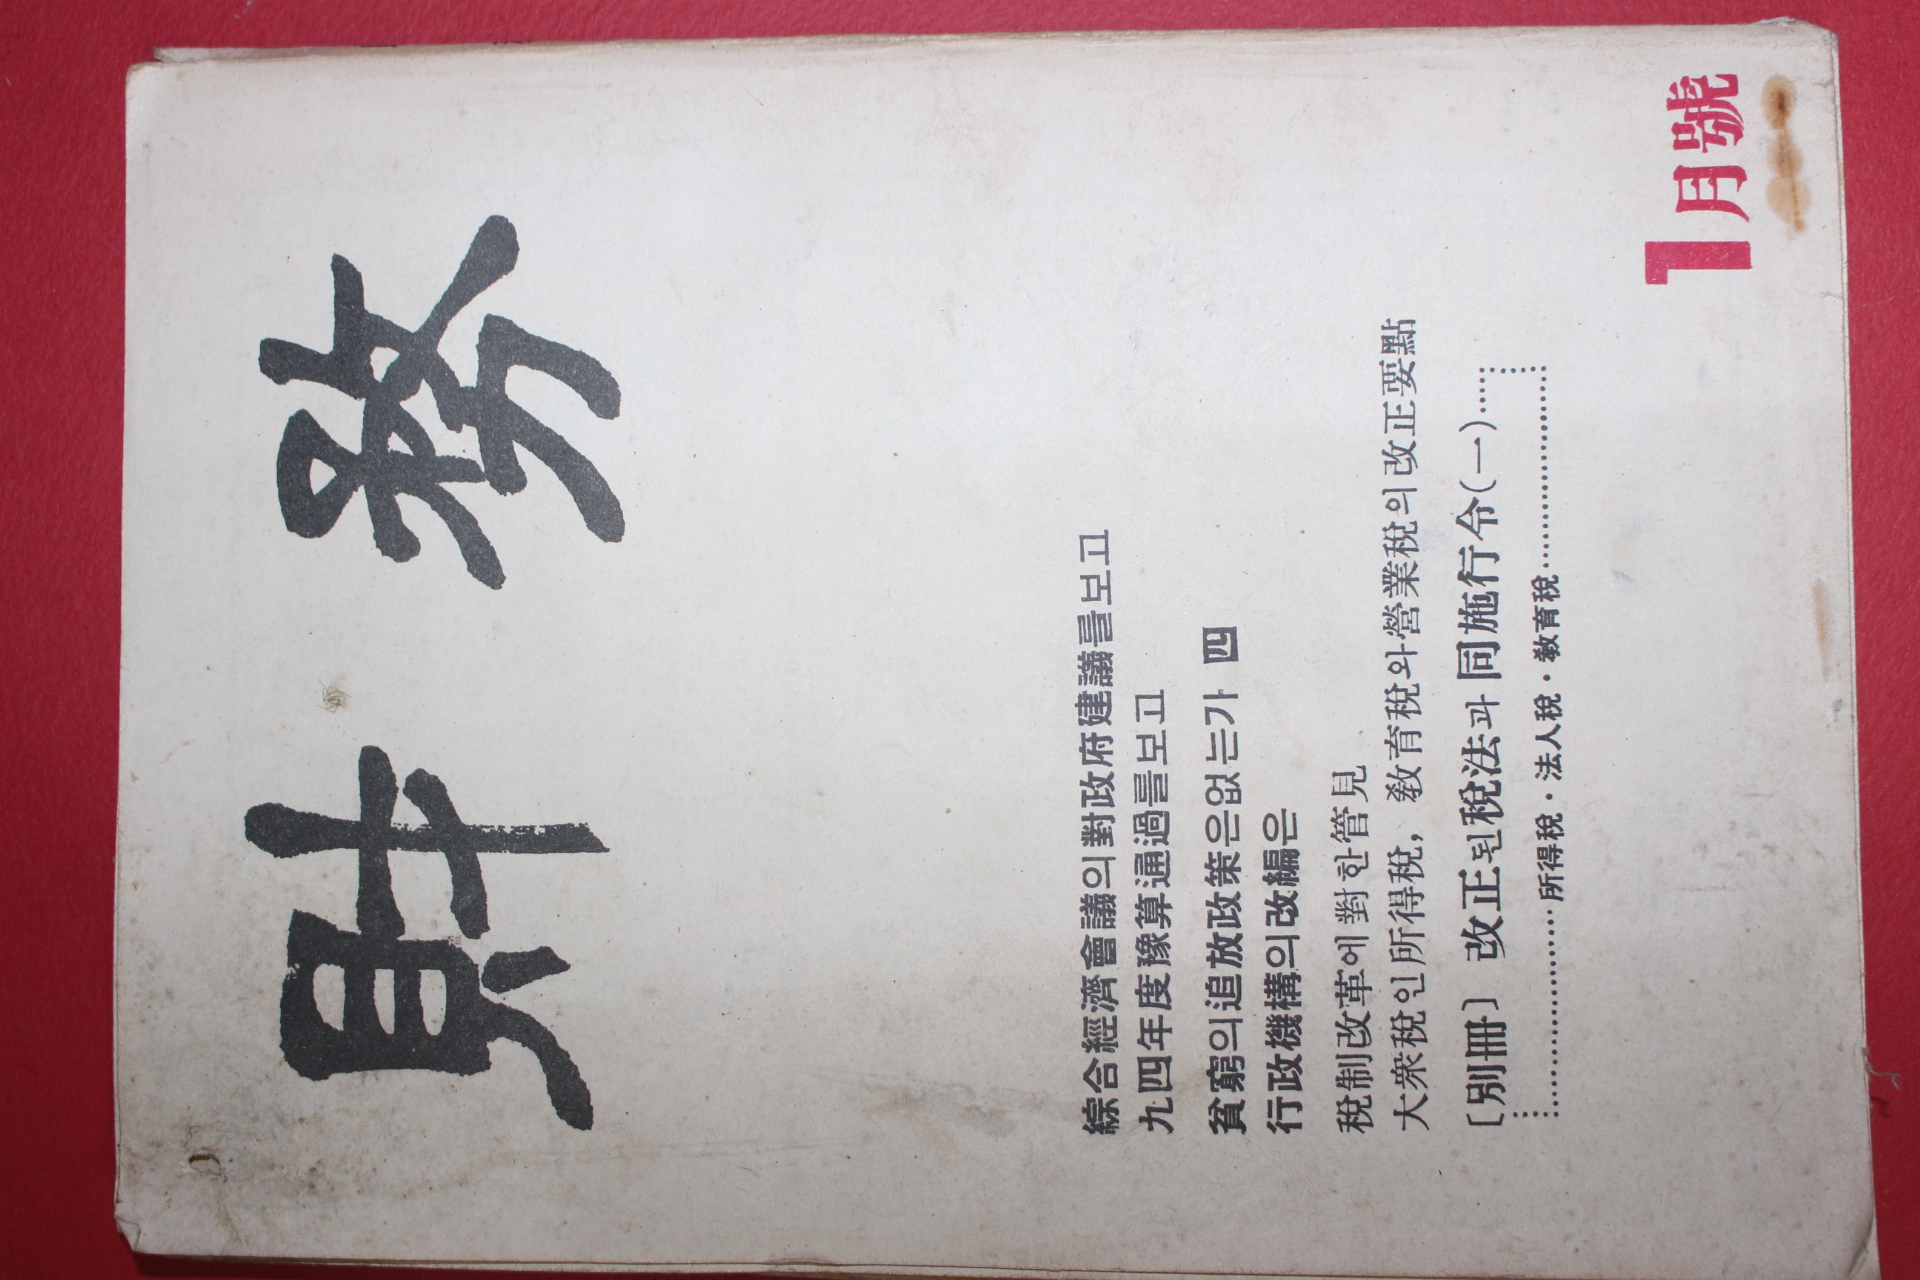 財務
綜合經濟會議의對政府建議를보고
九四年度豫算通過를보고
貧窮의追放政策은없는가 四
行政機構의改編은
稅制改革에對한管見
大衆稅인所得稅, 敎育稅와營業稅의改正要點
〔別冊〕 改正된稅法과同施行令(一)
所得稅·法人稅·敎育稅
1月號